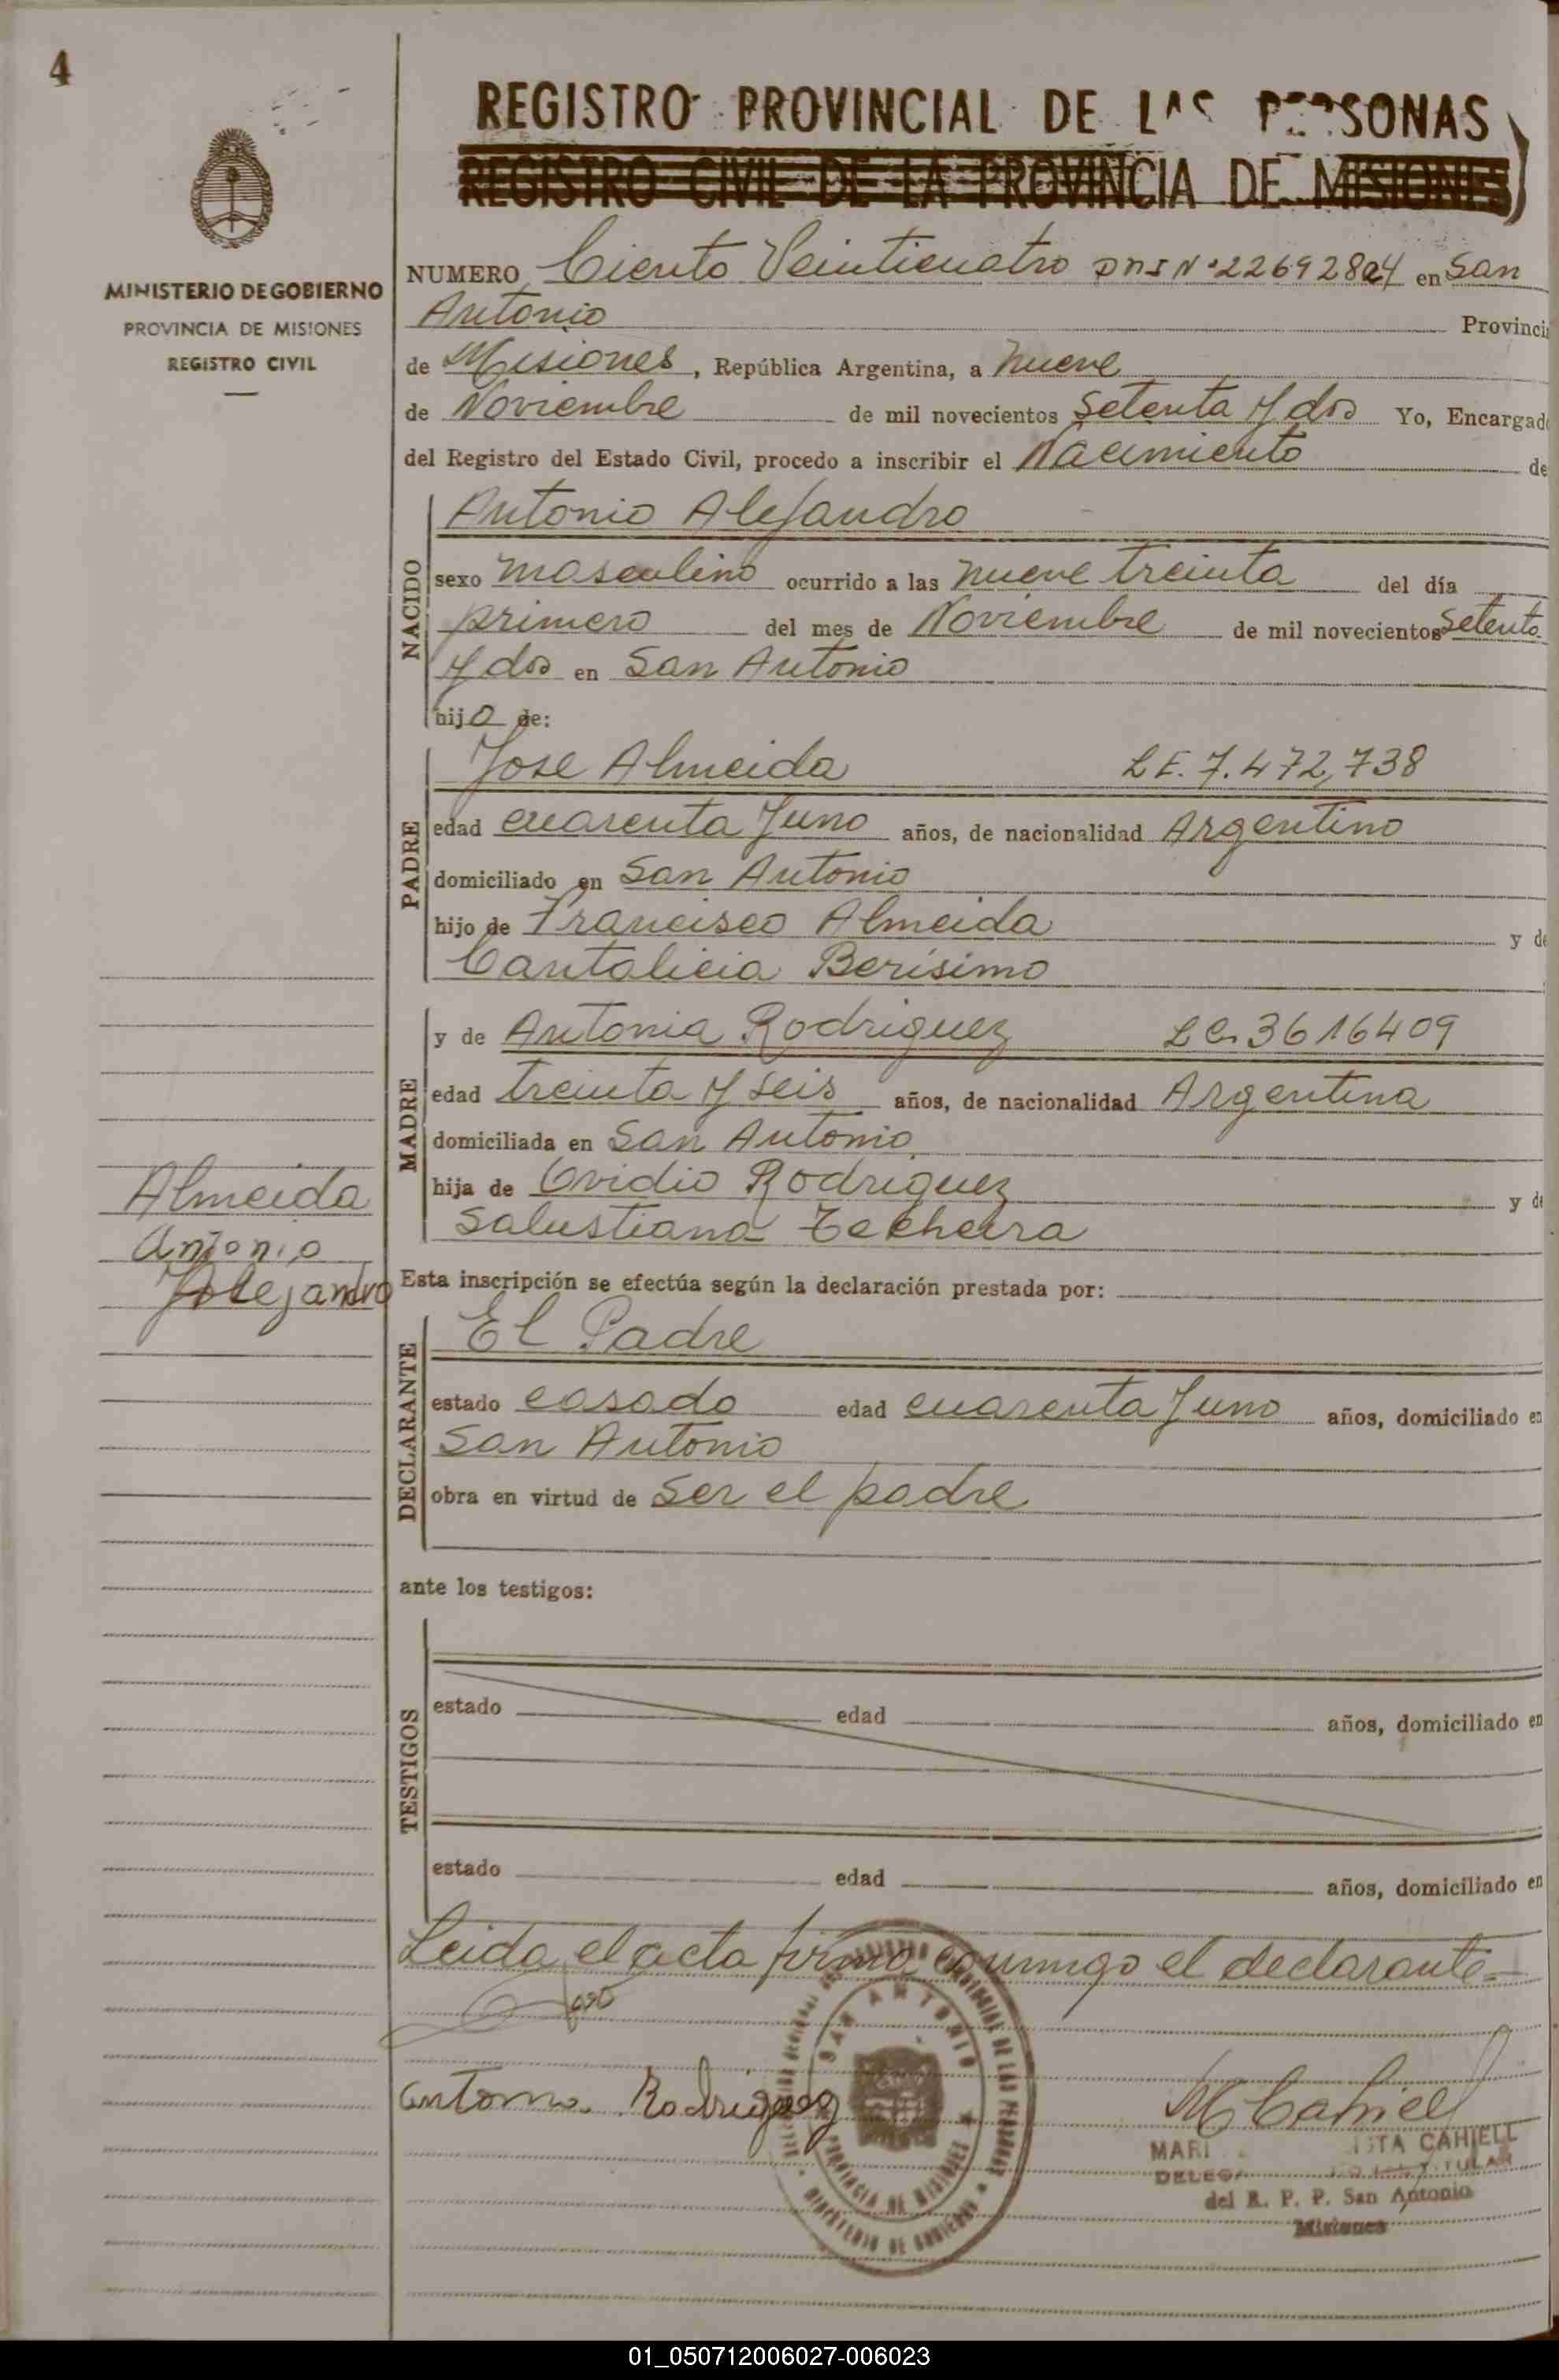 4
REGISTRO PROVINCIAL DE LAS PERSONAS
REGISTRO CIVIL DE LA PROVINCIA DE MISIONES
MINISTERIO DE GOBIERNO
PROVINCIA DE MISIONES
REGISTRO CIVIL
NUMERO Ciento Veinticuatro DNI Nº 22692804 en San
Antonio Provincia
de Misiones, República Argentina, a nueve
de Noviembre de mil novecientos setenta y dos Yo, Encargado
del Registro del Estado Civil, procedo a inscribir el Nacimiento de
NACIDO
Antonio Alejandro
sexo masculino ocurrido a las nueve treinta del día
primero del mes de Noviembre de mil novecientos setenta
y dos en San Antonio
hijo de:
PADRE
Jose Almeida L E. 7.472,738
edad cuarenta y uno años, de nacionalidad Argentino
domiciliado en San Antonio
hijo de Francisco Almeida y de
Cantalicia Berisimo
MADRE
y de Antonia Rodriguez L C. 3616409
edad treinta y seis años, de nacionalidad Argentina
domiciliada en San Antonio
hija de Ovidio Rodriguez y de
Salustiana Techeira
Almeida
Antonio
Alejandro
Esta inscripción se efectúa según la declaración prestada por:
DECLARANTE
El Padre
estado casado edad cuarenta y uno años, domiciliado en
San Antonio
obra en virtud de ser el padre
ante los testigos:
TESTIGOS
estado edad años, domiciliado en
estado edad años, domiciliado en
Leida el acta firma conmigo el declarante=
Jose
antonia Rodriguez
SAN ANTONIO
PROVINCIA DE MISIONES
MINISTERIO DE GOBIERNO
M Cahiell
MARI STA CAHIELL
DELEGA TITULAR
del R. P. P. San Antonio
Misiones
01_050712006027-006023